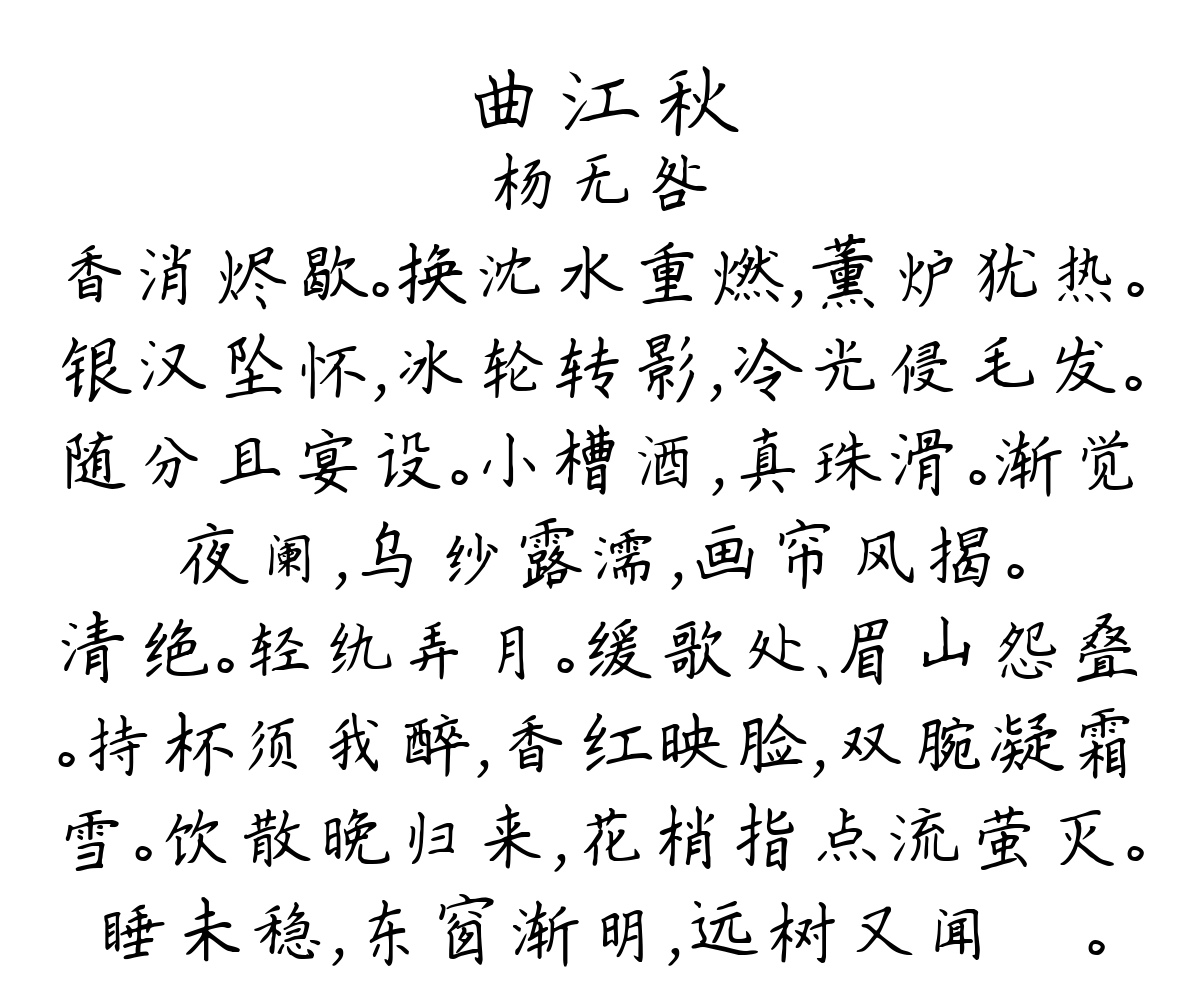 曲江秋
杨无咎
香消烬歇。换沈水重燃,薰炉犹热。
银汉坠怀,冰轮转影,冷光侵毛发。
随分且宴设。小槽酒,真珠滑。渐觉
夜阑,乌纱露濡,画帘风揭。
清绝。轻纨弄月。缓歌处、眉山怨叠
。持杯须我醉,香红映脸,双腕凝霜
雪。饮散晚归来,花梢指点流萤灭。
睡未稳,东窗渐明,远树又闻 。